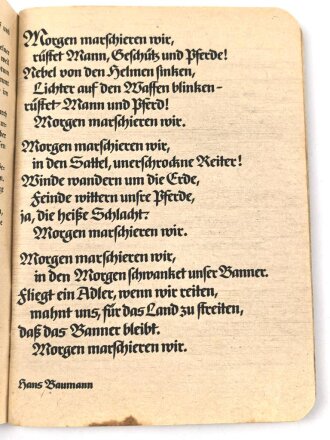 Morgen marschieren wir,
rüstet Mann, Geschütz und Pferde!
Nebel von den Helmen sinken,
Lichter auf den Waffen blinken-
rüstet Mann und Pferd!
Morgen marschieren wir.
Morgen marschieren wir,
in den Sattel, unerschrockne Reiter!
Winde wandern um die Erde,
Feinde wittern unsre Pferde,
ja, die heiße Schlacht:
Morgen marschieren wir.
Morgen marschieren wir,
in den Morgen schwanket unser Banner.
Fliegt ein Adler, wenn wir reiten,
mahnt uns, für das Land zu streiten,
daß das Banner bleibt.
Morgen marschieren wir.
Hans Baumann